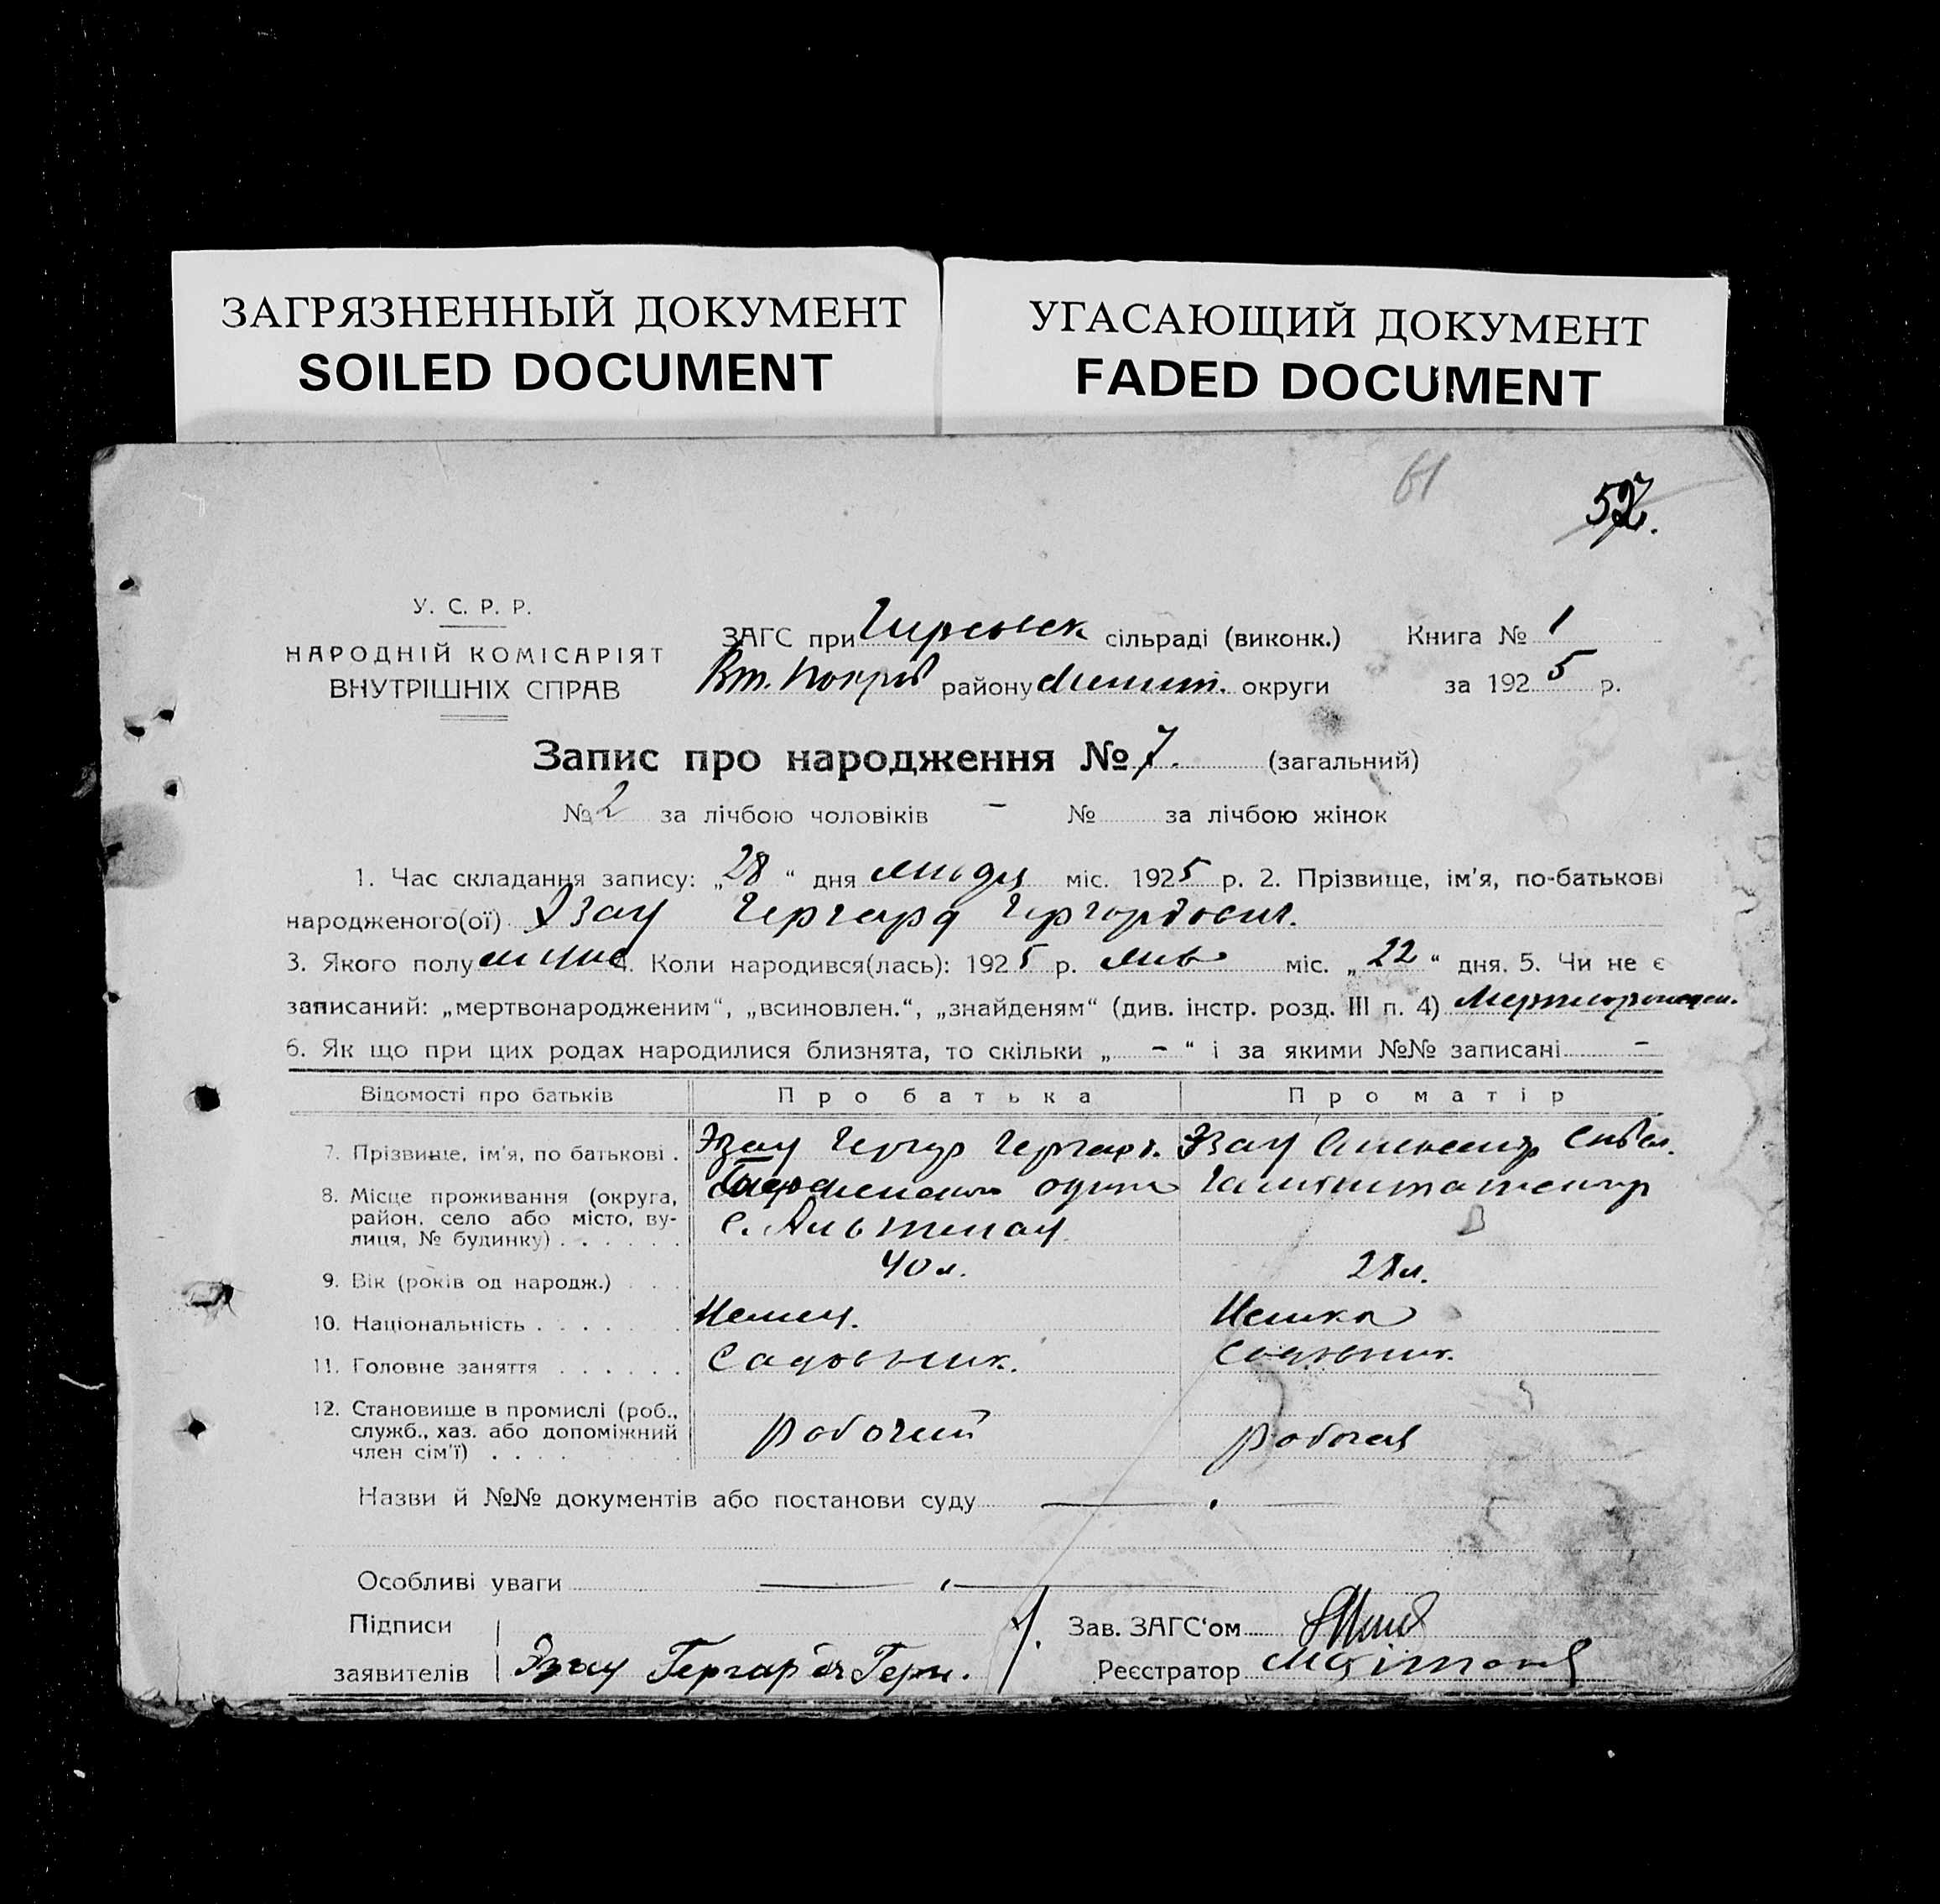 ЗАГРЯЗНЕННЫЙ ДОКУМЕНТ
SOILED DOCUMENT
УГАСАЮЩИЙ ДОКУМЕНТ
FADED DOCUMENT
61
У. С. Р. Р.
НАРОДНІЙ КОМІСАРІЯТ
ВНУТРІШНІХ СПРАВ
ЗАГС при сільраді (виконк.) Книга № 1
району округи за 1925 р.
Запис про народження № 7. (загальний)
№ 2 за лічбою чоловіків - № за лічбою жінок
1. Час складання запису: „28“ дня міс. 1925 р. 2. Прізвище, ім'я, по-батькові
народженого(ої) Эзау Гергард Гергардович.
3. Якого полу 4. Коли народився(лась): 1925 р. міс. „22“ дня. 5. Чи не є
записаний: „мертвонародженим“, „всиновлен.“, „знайденям“ (див. інстр. розд. III п. 4)
6. Як що при цих родах народилися близнята, то скільки „ - “ і за якими №№ записані -
Відомості про батьків Про батька Про матір
7. Прізвище, ім'я, по батькові . Эзау Гергар Гергард. Эзау
8. Місце проживання (округа,
район, село або місто, ву-
лиця, № будинку) . . . . . . с.
9. Вік (років од народж.) . . . 40 л. 28 л.
10. Національність . . . . . . Немец. Немка
11. Головне заняття . . . . . . Садовник. Садовник.
12. Становище в промислі (роб.,
служб., хаз. або допоміжний
член сім'ї) . . . . рабочий рабочая
Назви й №№ документів або постанови суду
Особливі уваги
Підписи
Зав. ЗАГС'ом
заявителів Эзау Гергард Герн.
Реєстратор